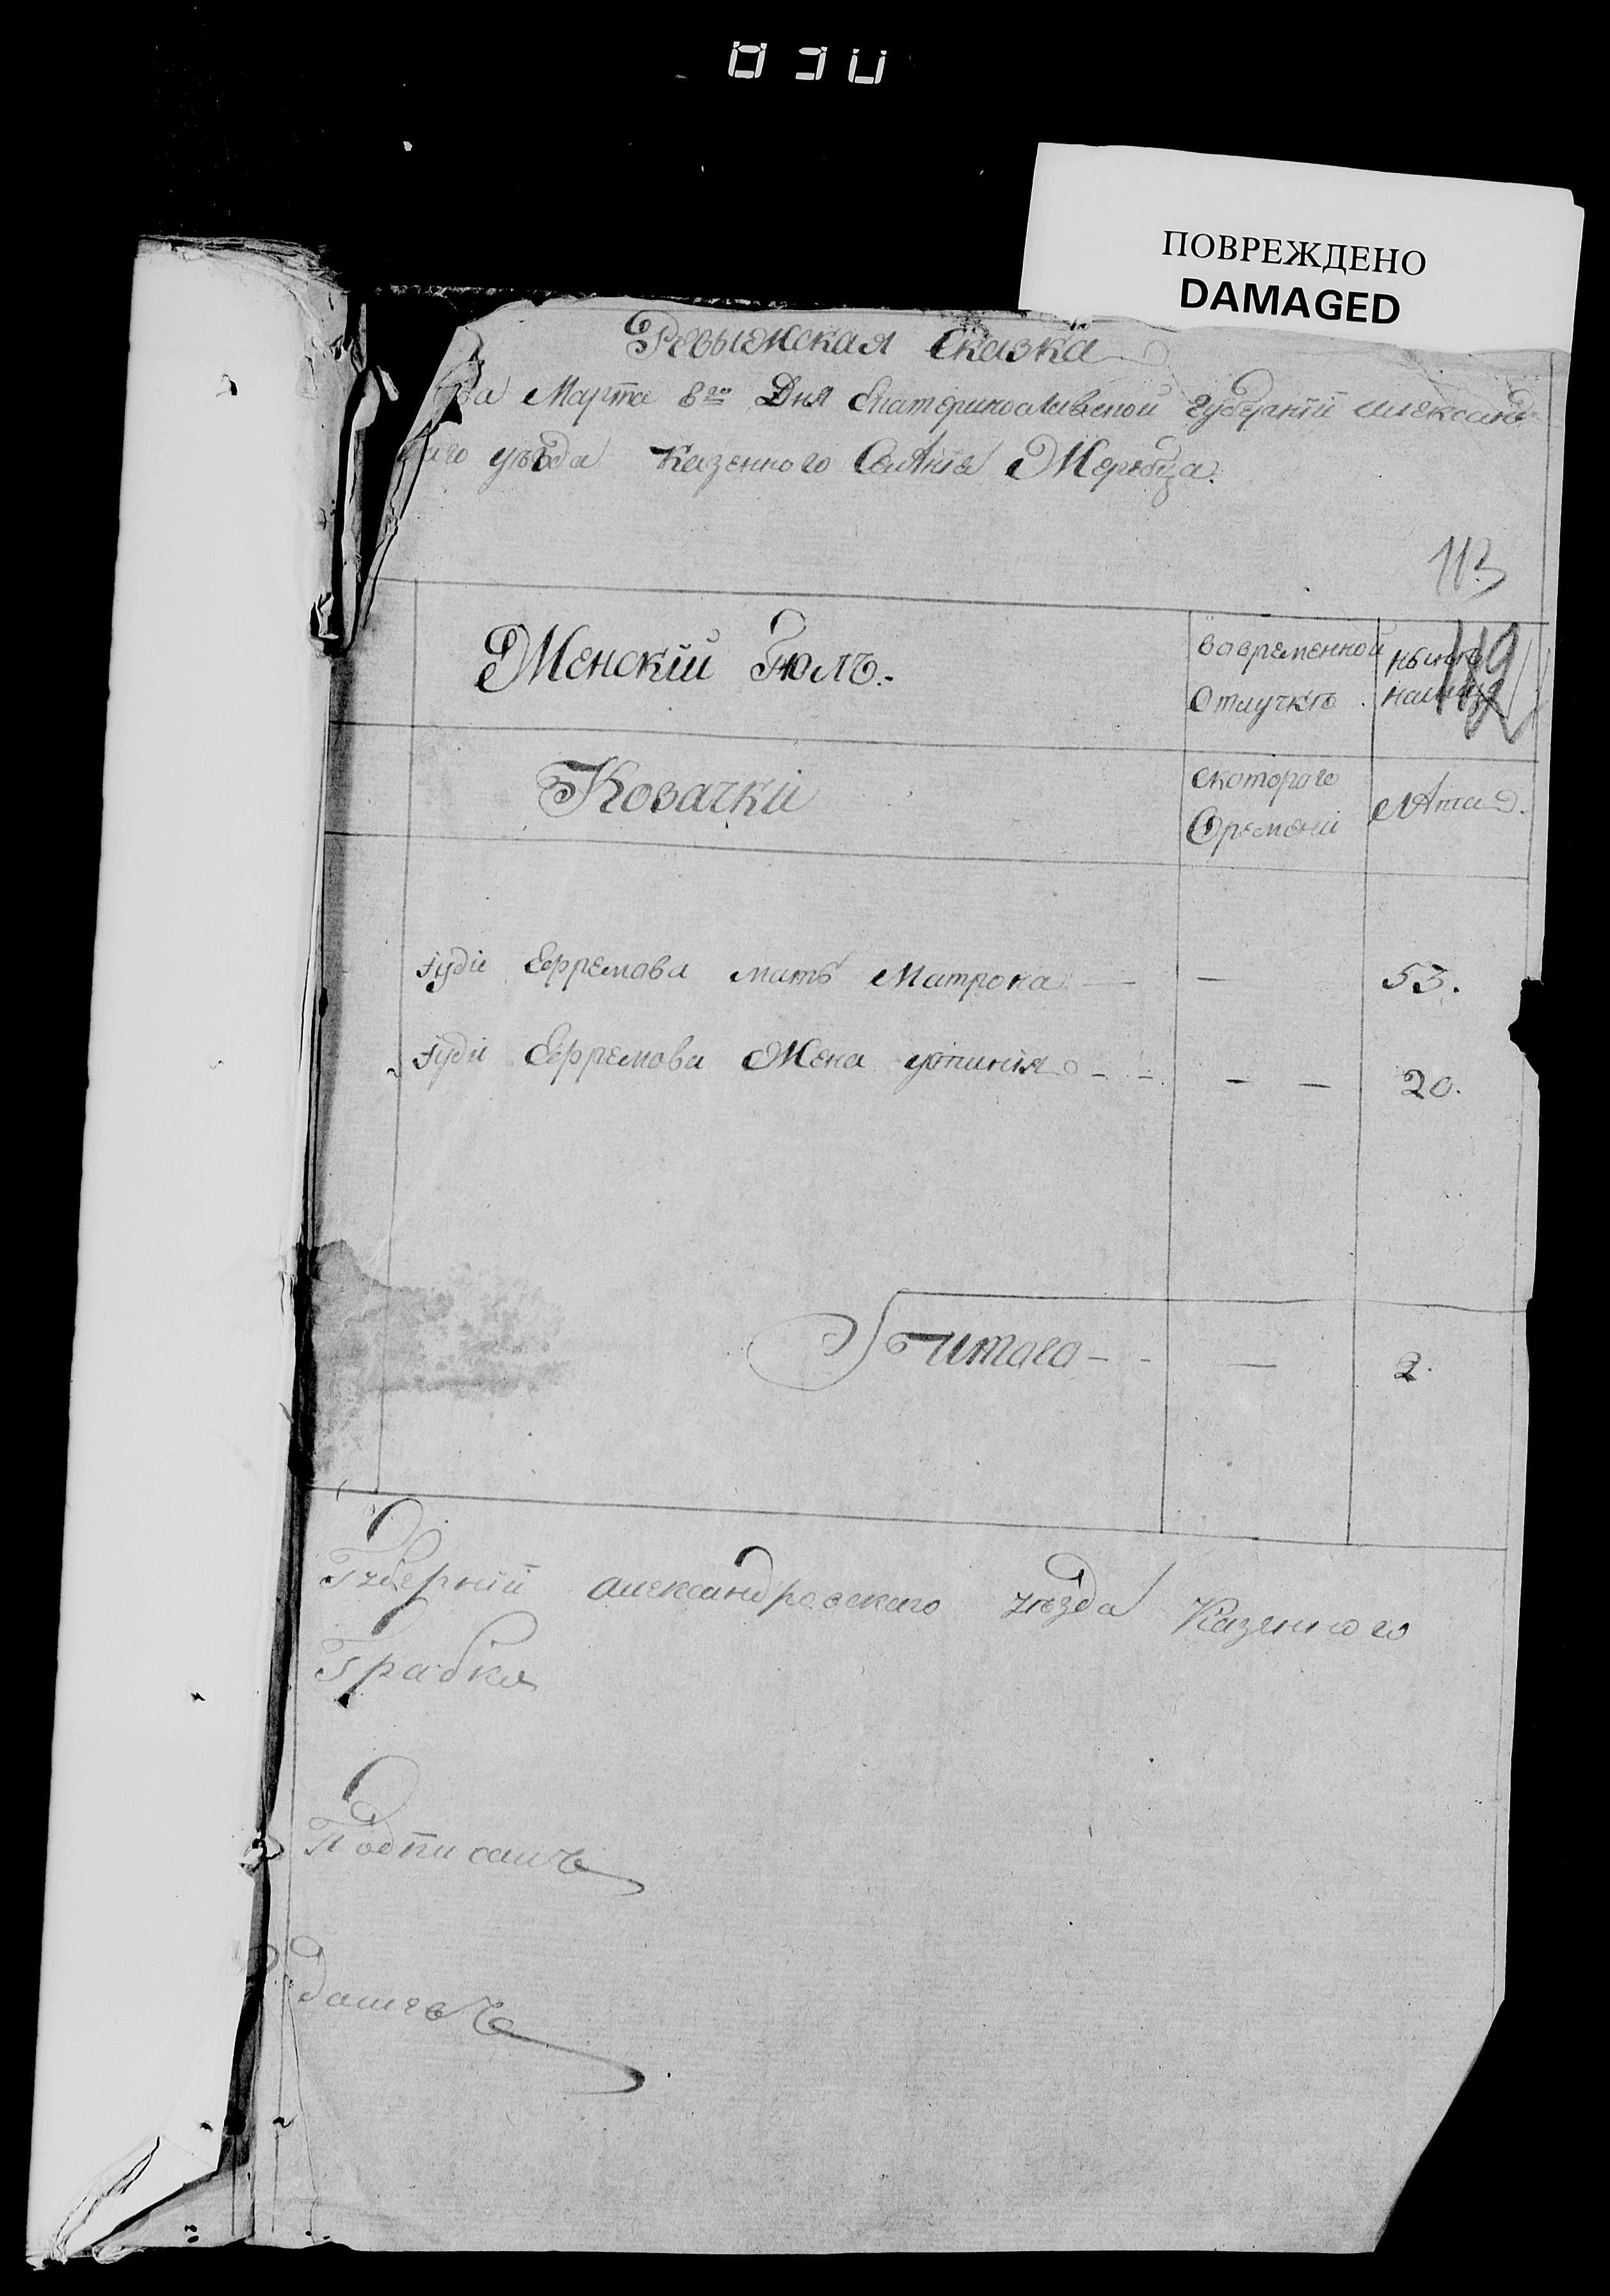 ПОВРЕЖДЕНО
DAMAGED
Ревыжская Сказка
да Марта 8го Дня Екатеринославской губерніи Александ
аго уѣзда Казенного Селѣнія Жеребца.
113
Женскій Полъ.
вовременной
Отлучкѣ
нынѣ
налицо
112
Козачки
скоторого
времени
лѣта
Іудіе Ефремова мать Матрона — — 53.
Іудіе Ефремова Жена — — 20.
Итого — — 2.
Губерніи Александровского уѣзда Казенного
Грабкя
Подписалъ